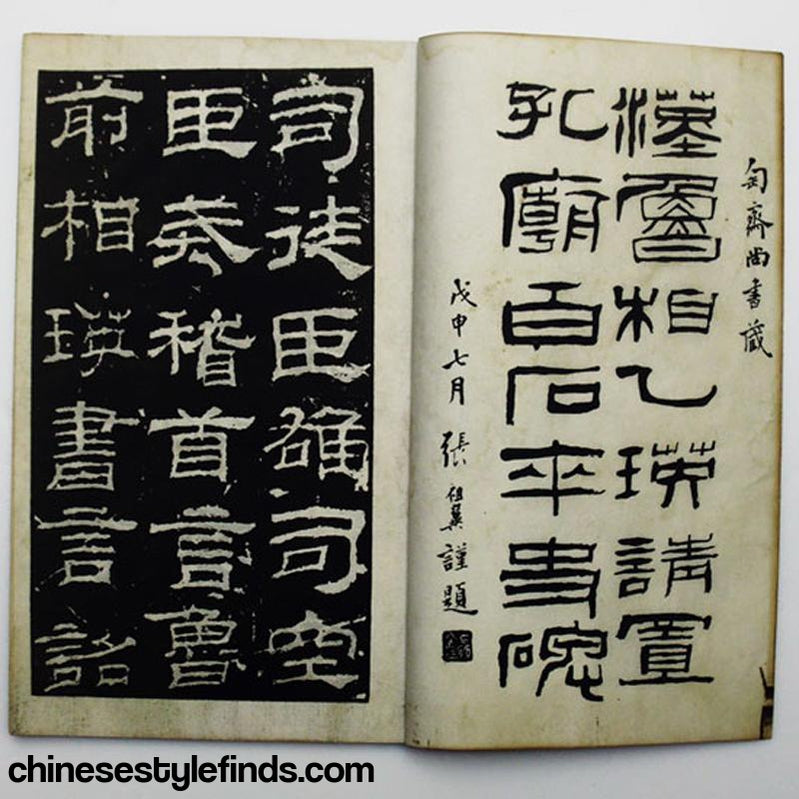 匋齋尚書藏
漢魯相乙瑛請置
孔廟百石卒史碑
戊申七月張祖翼謹題
司徒臣雄司空
臣戒稽首言魯
前相瑛書言詔
chinesestylefinds.com